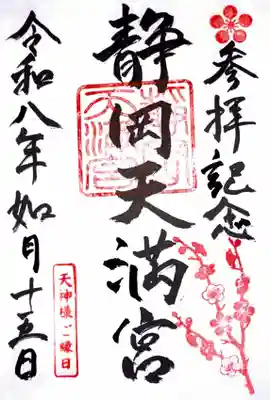 参拝記念
静岡天満宮
令和八年如月十五日
天神様ご縁日